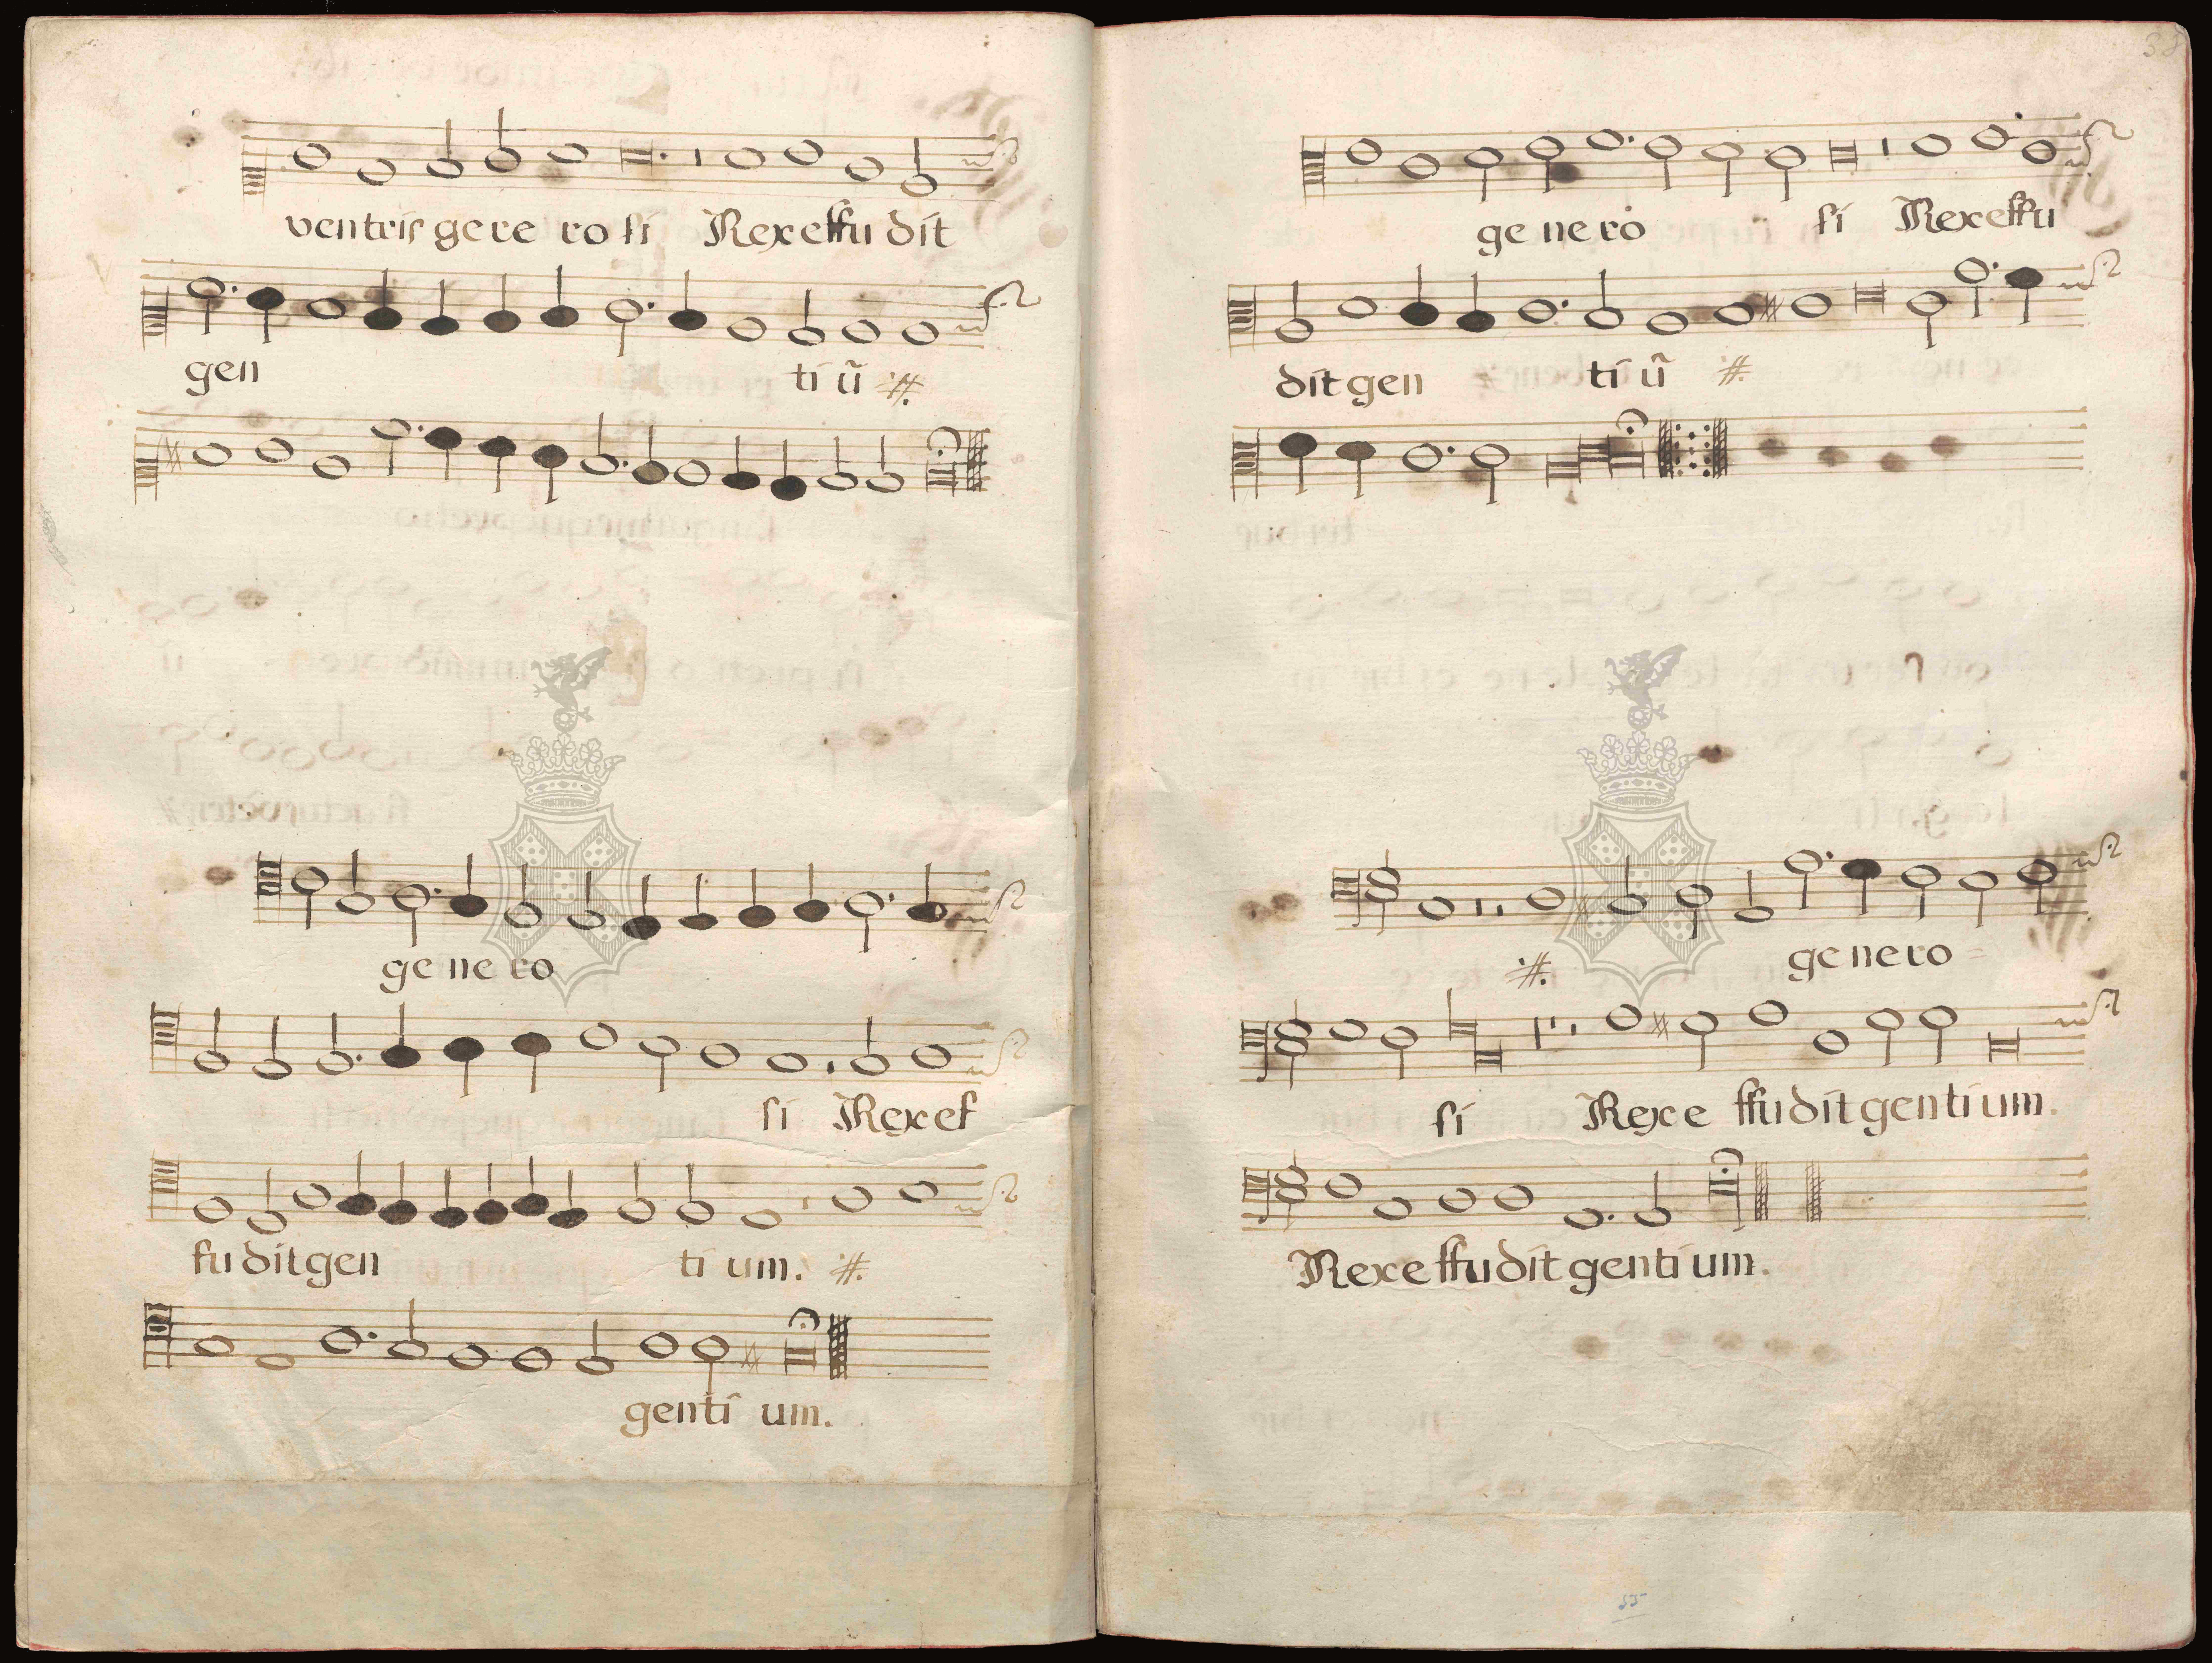 ventris ge re ro si Rex effu dit
gen ti ũ
ge ne ro
si Rex ef
fu dit gen ti um.
gen ti um.
ge ne ro si Rex effu
dit gen ti ũ
ge ne ro
si Rex e ffu dit gen ti um.
Rex e ffu dit gen ti um.